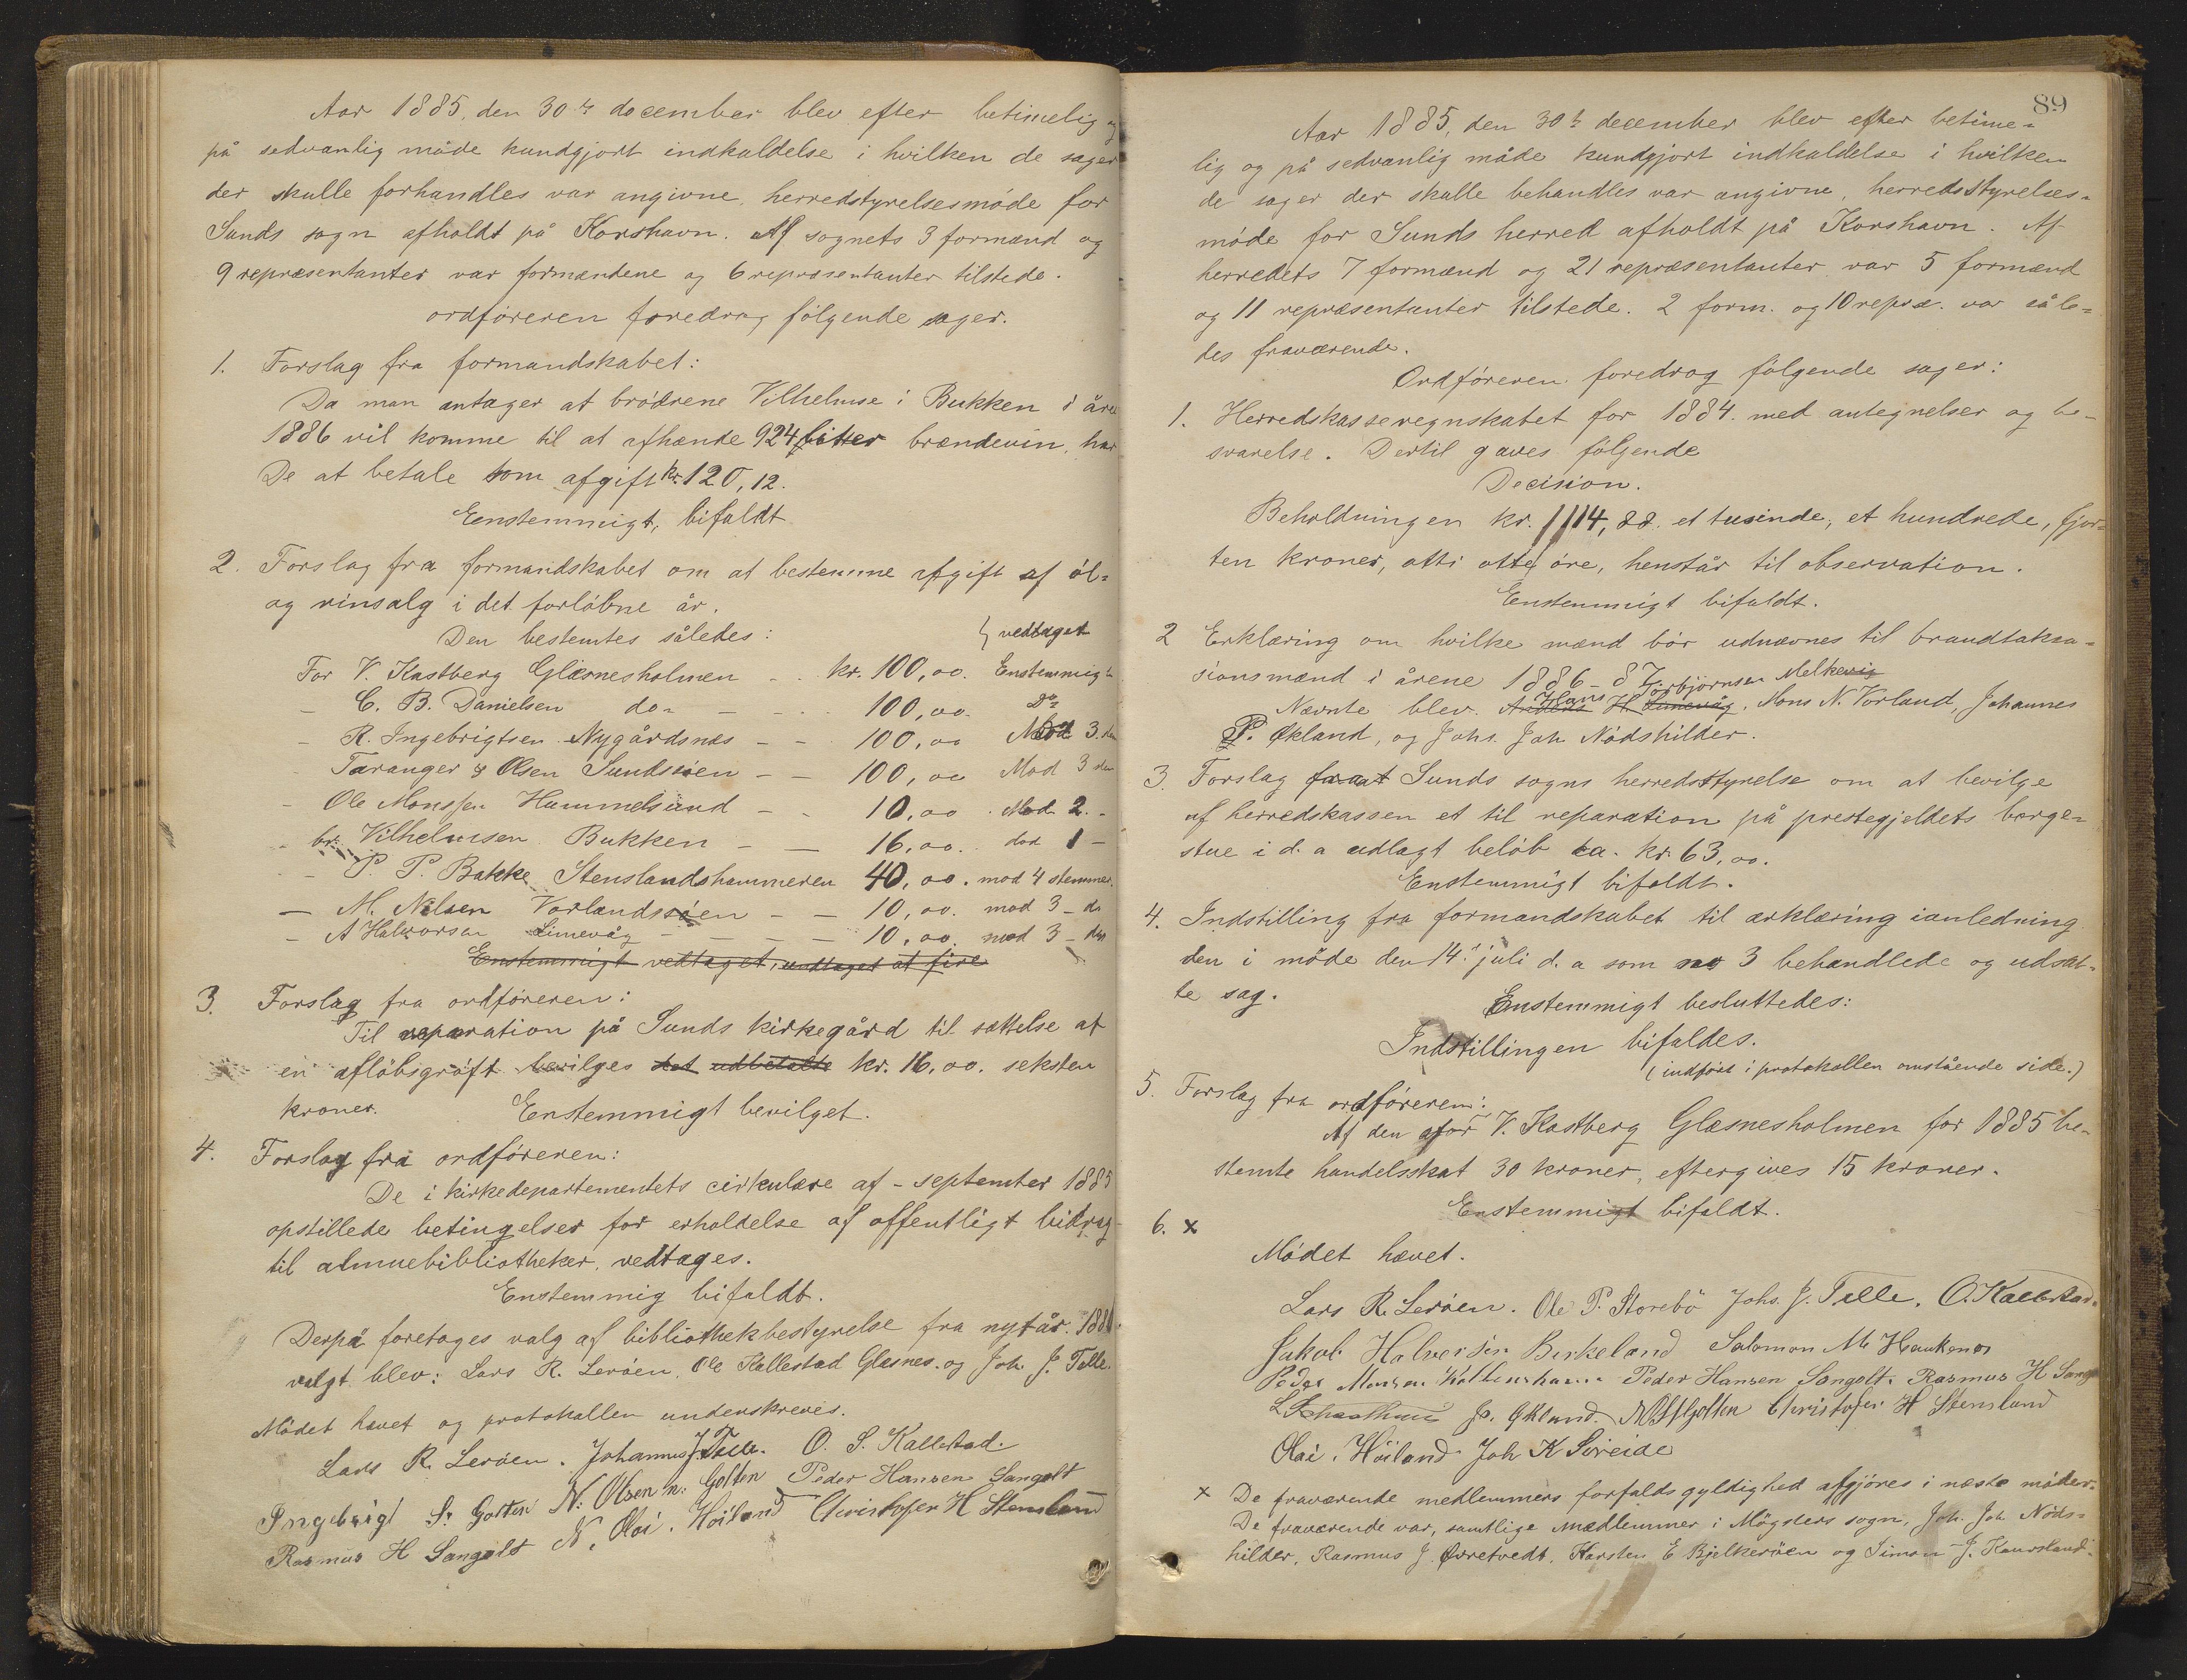 Aar 1885, den 30te december blev efter betimelig og
på sedvanlig måde kundgjort indkaldelse i hvilken de sager
der skulle forhandles var angivne, herredstyrelsesmöde for
Sunds sogn afholdt på Korshavn. Af sognets 3 formænd og
9 repræsentanter var formændene og 6 repræsentanter tilstede.
ordföreren foredrog fölgende sager.
1. Forslag fra formandskabet:
Da man antager at brödrene Vilhelmse i Bukken i året
1886 vil komme til at afhænde 924 litter brændevin, har
De at betale som afgift kr. 120,12.
Eenstemmigt, bifaldt.
2. Forslag fra formandskabet om at bestemme afgift af öl-
og vinsalg i det forlöbne år.
Den bestemtes således: } vedtaget
For V. Kastberg Glæsnesholmen - - kr. 100,00. Enstemmigt
- C. B. Danielsen do - - - 100,00. Do
- R. Ingebrigtsen Nygårdsnæs - - 100,00 Mod 3. do
- Taranger & Olsen Sundssöen - - 100,00 Mod 3 do
- Ole Monssen Hummelsund - - 10,00. Mod 2. -
- br. Vilhelmsen Bukken - - 16,00. do 1 -
- P. P. Bakke Stenslandshammeren 40,00. mod 4 stemmer.
- M. Nilsen Vorlandssöen - - 10,00. mod 3 - do
- A Halvorsen Limevåg - - - - 10,00. mod 3 - do
Enstemmigt vedtaget, undtaget at fire
3. Forslag fra ordföreren:
Til reparation på Sunds kirkegård til sættelse af
en aflöbsgröft bevilges det udbetalte kr. 16,00. seksten
kroner. Enstemmigt bevilget.
4. Forslag fra ordföreren:
De i kirkedepartementets cirkulære af - september 1885
opstillede betingelser for erholdelse af offentligt bidrag
til almuebibliotheker, vedtages.
Enstemmig bifaldt.
Derpå foretoges valg af bibliothekbestyrelse fra nytår 1886.
valgt blev: Lars R. Leröen, Ole Kallestad Glæsnes. og Joh. J. Telle.
Mödet hævet og protokollen underskreves.
Lars R. Leröen. Johannes J. Telle. O. S. Kallestad.
Ingebrigt S. Golten N. Olsen n. Golten Peder Hansen Sangolt
Rasmus H Sangolt N. Olai. Höiland Christofer H Stensland
89
Aar 1885, den 30te december blev efter betime-
lig og på sedvanlig måde kundgjort indkaldelse i hvilken
de sager der skulle behandles var angivne, herredsstyrelses-
möde for Sunds herred afholdt på Korshavn. Af
herredets 7 formænd og 21 repræsentanter var 5 formænd
og 11 repræsentanter tilstede. 2 form. og 10 repræ. var såle-
des fraværende.
Ordföreren foredrog fölgende sager:
1. Herredskasseregnskabet for 1884. med antegnelser og be-
svarelse. Dertil gaves fölgende
Decision.
Beholdningen kr. 1114,88. et tusinde, et hundrede, fjor-
ten kroner, otti otte öre, henstår til observation.
Eenstemmigt bifaldt.
2 Erklæring om hvilke mænd bör udnævnes til brandtaksa-
sionsmænd i årene 1886-87. Torbjörnsen Melkevig
Nævnte blev. Anders Hans H. Limevåg, Mons N. Vorland, Johannes
P. Økland, og Johs. Joh Nödshilder.
3. Forslag fra at Sunds sogns herredsstyrelse om at bevilge
af herredskassen et til reparation på prestegjeldets borge-
stue i d. a udlagt belöb ca. kr. 63,00.
Eenstemmigt bifaldt.
4. Indstilling fra formandskabet til ærklæring ianledning
den i möde den 14de juli d. a som no 3 behandlede og udsat-
te sag. Enstemmigt besluttedes:
Indstillingen bifaldes.
(indfört i protokollen omstående side.)
5. Forslag fra ordföreren:
Af den afor V. Kastberg Glæsnesholmen for 1885 be-
stemte handelsskat 30 kroner, eftergives 15 kroner.
Enstemmigt bifaldt.
6. x
Mödet hævet.
Lars R. Leröen. Ole P. Storebö Johs. J. Telle. O. Kallestad.
Jakob Halversen Birkeland Salomon M Haukenes
Peder Monsen Peder Hansen Sangolt. Rasmus H Sangolt
Økland. Christofer H Stensland
Olai. Höiland Joh K Söreide
x De fraværende medlemmers forfalds gyldighed afgjöres i næste möder.
De fraværende var, samtlige medlemmer i Mögsters sogn, Joh. Joh Nöds-
hilder, Rasmus J. Øvretvedt, Karsten E Bjelkeröen og Simon J. Kausland.